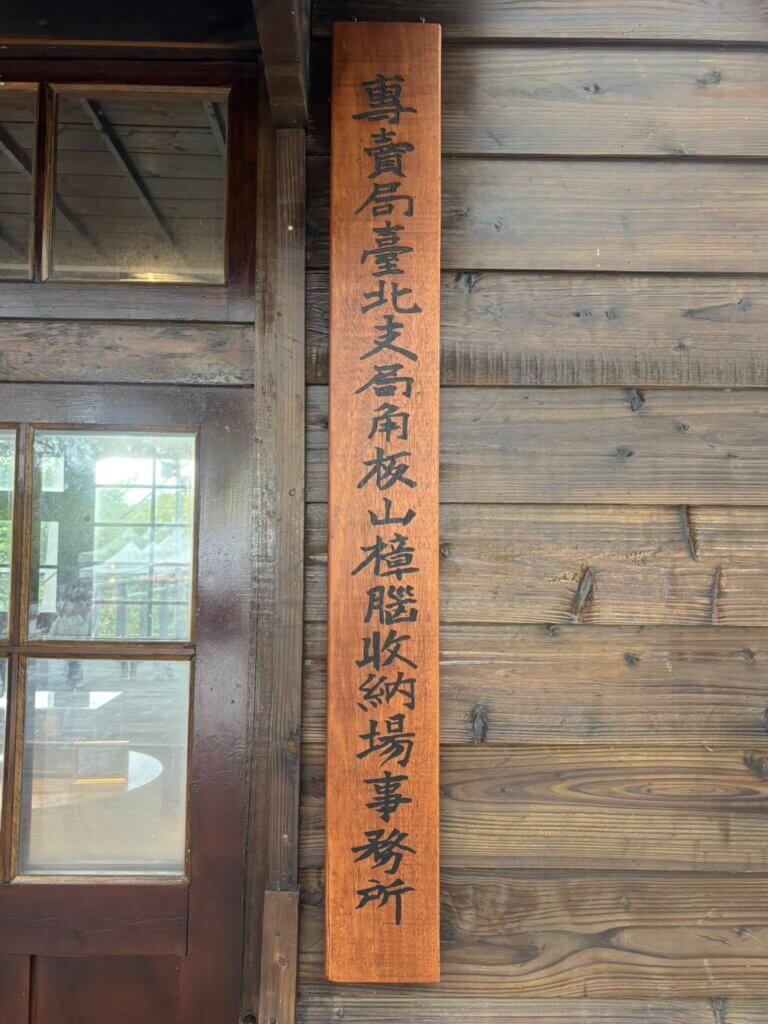 專賣局臺北支局角板山樟腦收納場事務所